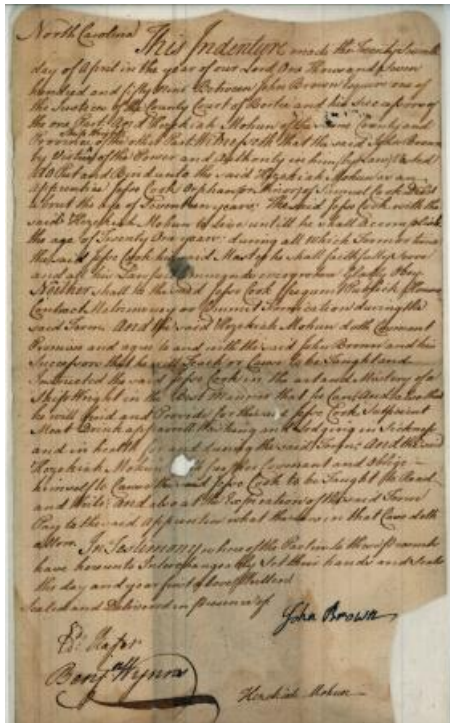 North Carolina This Indenture made the Twenty Seventh
day of April in the year of our Lord One Thousand Seven
hundred and fifty Nine Between John Brown Esquire one of
the Justices of the County Court of Bertie and his Successors of
the one Part And Hezekiah Mohun of the same County and
Ship Wright
Province of the other Part Witnesseth that the said John Brown
by Virtue of the Power and Authority in him by Law
Put and Bind unto the said Hezekiah Mohun as an
Apprentice Jesse Cook Orphan of Samuel Cook
about the age of Seventeen years The said Jesse Cook with the
said Hezekiah Mohun to Live untill he shall accomplish
the age of Twenty One years during all which Term or time
the said Jesse Cook his said Master he shall faithfully serve
and all his Lawfull Commands every where Gladly Obey
Neither shall he the said Jesse Cook
Contract Matrimony or Commit Fornication during the
said Term. And the said Hezekiah Mohun doth Covenant
Promise and agree to and with the said John Brown and his
Successors that he will Teach or Cause to be Taught and
Instructed the said Jesse Cook in the art and Mistery of a
Ship Wright in the Best Manner that he Can, And also that
he will find and Provide for the said Jesse Cook Sufficient
Meat Drink apparell Washing and Lodging in Sickness
and in health for and during the said Term; And the said
Hezekiah Mohun doth further Covenant and Oblige
himself to Cause the said Jesse Cook to be Taught to Read
and Write; And also at the Expiration of the said Term
Pay to the said Apprentice what the Law in that Case doth
allow. In Testimony whereof the Parties to these presents
have hereunto Interchangeably Set their hands and Seals
the day and year first above Written
Sealed and Delivered in presence of
John Brown
Benj. Wynns
Hezekiah Mohun